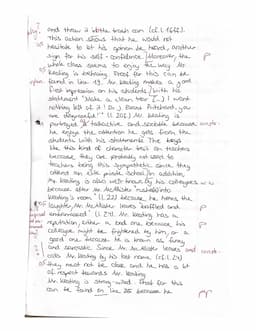 and throw it into the trash can (cf. l. 16ff).
This action shows that he would not
hesitate to let his opinion be heard, another
sign for his self-confidence. Moreover, the
whole class seems to enjoy the way Mr
Keating is teaching. Proof for this can be
found in line 19. Mr. Keating makes a good
first impression on his students with his
statement "Make a clean tear [...] I want
nothing left of it! Dr. J. Evans Pritchard, you
are disgraceful!" (l. 20f.) Mr. Keating is
portrayed as talkative and sociable because
he enjoys the attention he gets from the
students with his statements. The boys
like this kind of character trait on teachers
because they are probably not used to
teachers being this sympathetic since they
attend an elite private school. In addition,
Mr. Keating is also well-known by his colleagues
because after Mr. McAllister "rushed into
Keating's room" (l. 22) because he hears the
laughter, Mr. McAllister leaves "baffled and
embarrassed" (l. 24). Mr. Keating has a
reputation, either a bad one because his
colleague might be frightened by him, or a
good one because he is known as funny
and sarcastic. Since Mr. McAllister leaves and
calls Mr. Keating by his last name (cf. l. 24)
they must not be close and he has a lot
of respect towards Mr. Keating.
Mr. Keating is strong-willed. Proof for this
can be found in line 25 because he